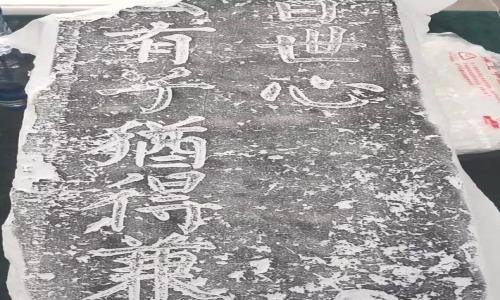 世心
有子猶得兼